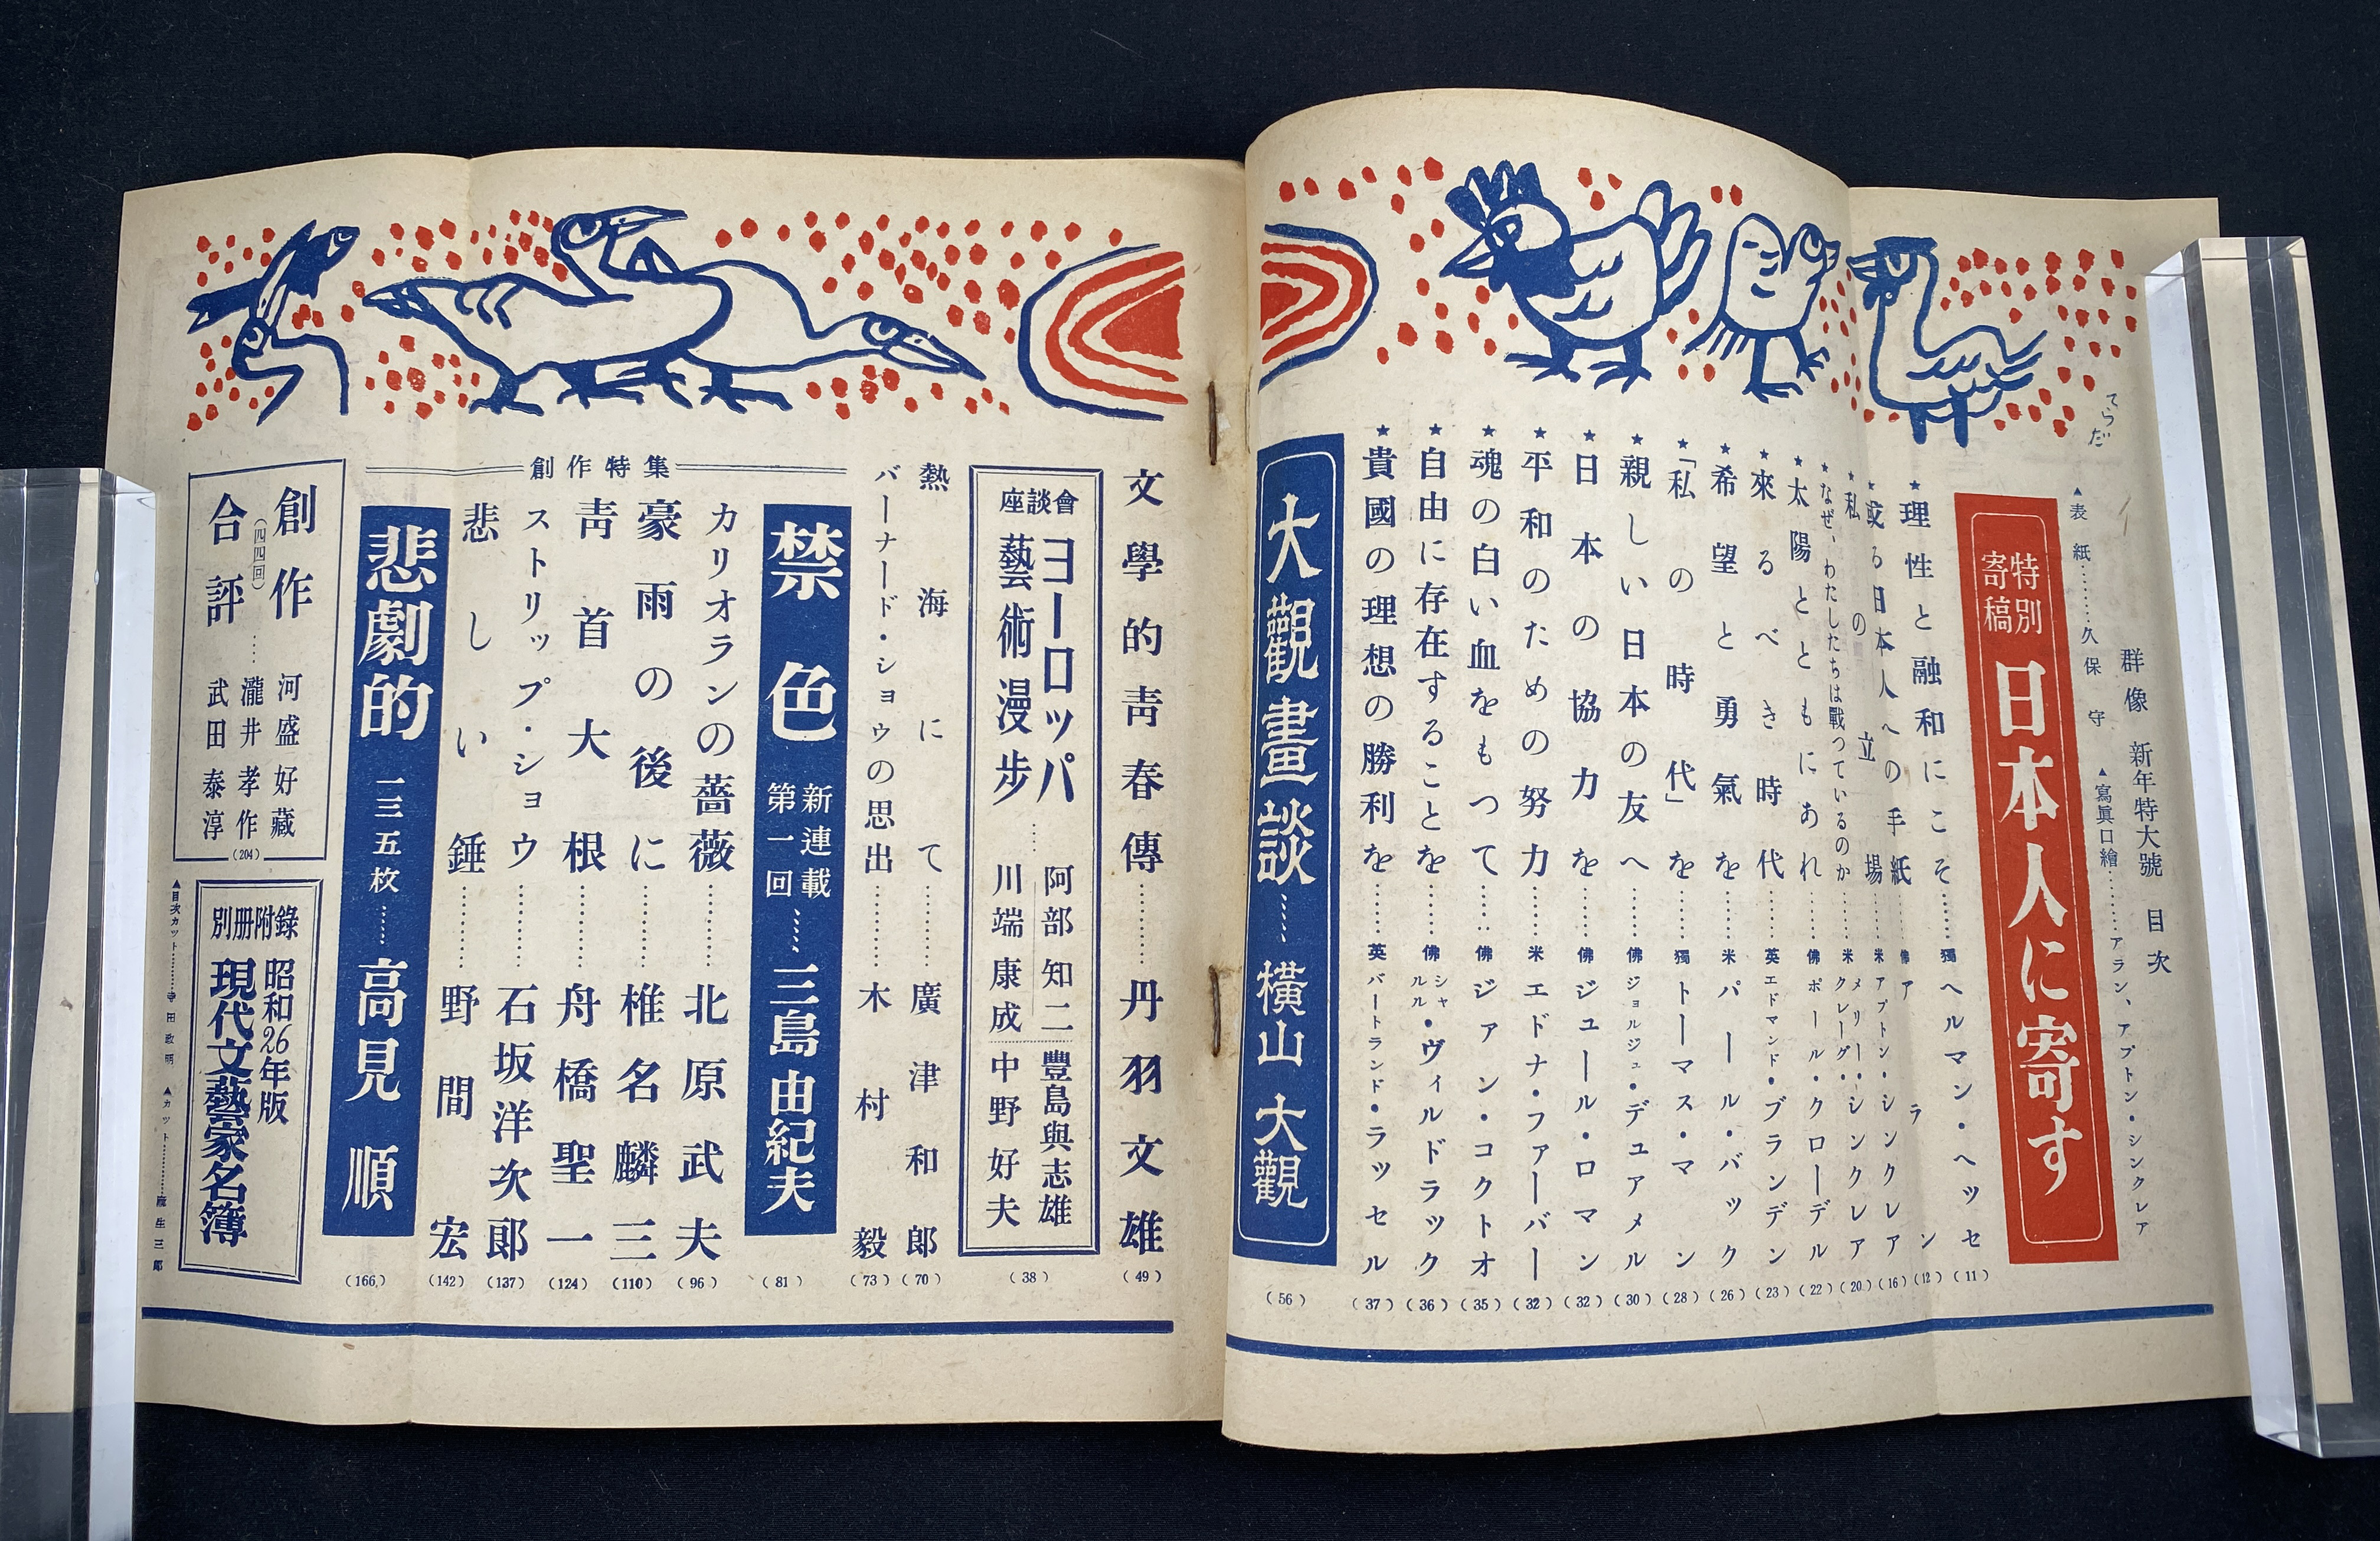 てらだ
群像 新年特大號 目次
▲表紙……久保守 ▲寫眞口繪……アラン、アプトン・シンクレア
特別寄稿 日本人に寄す
★理性と融和にこそ……獨 ヘルマン・ヘッセ (11)
★或る日本人への手紙……佛 アラン (12)
★私の立場……米 アプトン・シンクレア (16)
★なぜ、わたしたちは戰つているのか 米 メリー・クレーグ・シンクレア (20)
★太陽とともにあれ……佛 ポール・クローデル (22)
★來るべき時代……英 エドマンド・ブランデン (23)
★希望と勇氣を……米 パール・バック (26)
★「私の時代」を……獨 トーマス・マン (28)
★親しい日本の友へ……佛 ジョルジュ・デュアメル (30)
★日本の協力を……佛 ジュール・ロマン (32)
★平和のための努力……米 エドナ・ファーバー (32)
★魂の白い血をもつて……佛 ジァン・コクトオ (35)
★自由に存在することを……佛 シャルル・ヴィルドラック (36)
★貴國の理想の勝利を……英 バートランド・ラッセル (37)
大觀畫談……橫山大觀 (56)
文學的靑春傳……丹羽文雄 (49)
座談會 ヨーロッパ藝術漫步……阿部知二 豐島與志雄 川端康成 中野好夫 (38)
熱海にて……廣津和郎 (70)
バーナード・ショウの思出……木村毅 (73)
創作特集
禁色 新連載第一回……三島由紀夫 (81)
カリオランの薔薇……北原武夫 (96)
豪雨の後に……椎名麟三 (110)
靑首大根……舟橋聖一 (124)
ストリップ・ショウ……石坂洋次郎 (137)
悲しい錘……野間宏 (142)
悲劇的 一三五枚……高見順 (166)
創作合評 (四四回)……河盛好藏 瀧井孝作 武田泰淳 (204)
別冊附錄 昭和26年版 現代文藝家名簿
▲目次カット……寺田政明 ▲カット……麻生三郎